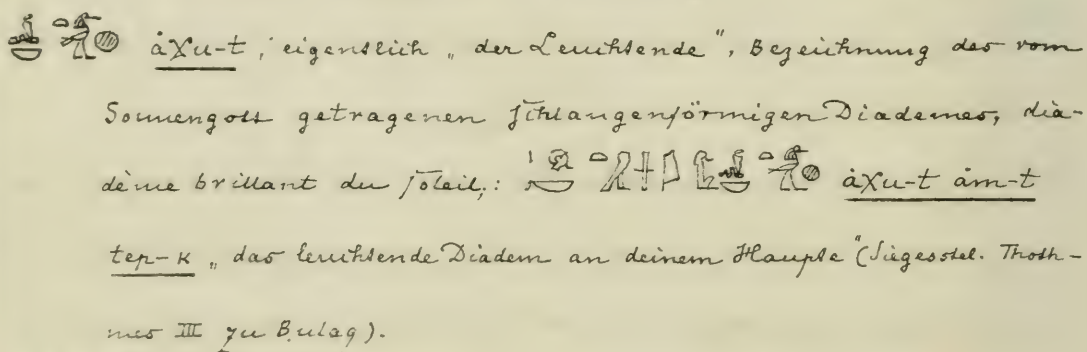 åχu-t, eigentlich „der Leuchtende", Bezeichnung des vom
Sonnengott getragenen schlangenförmigen Diademes, dia-
dème brillant du soleil,: åχu-t åm-t
tep-k „das leuchtende Diadem an deinem Haupte" (Siegesstel. Thoth-
mes III zu Bulaq).